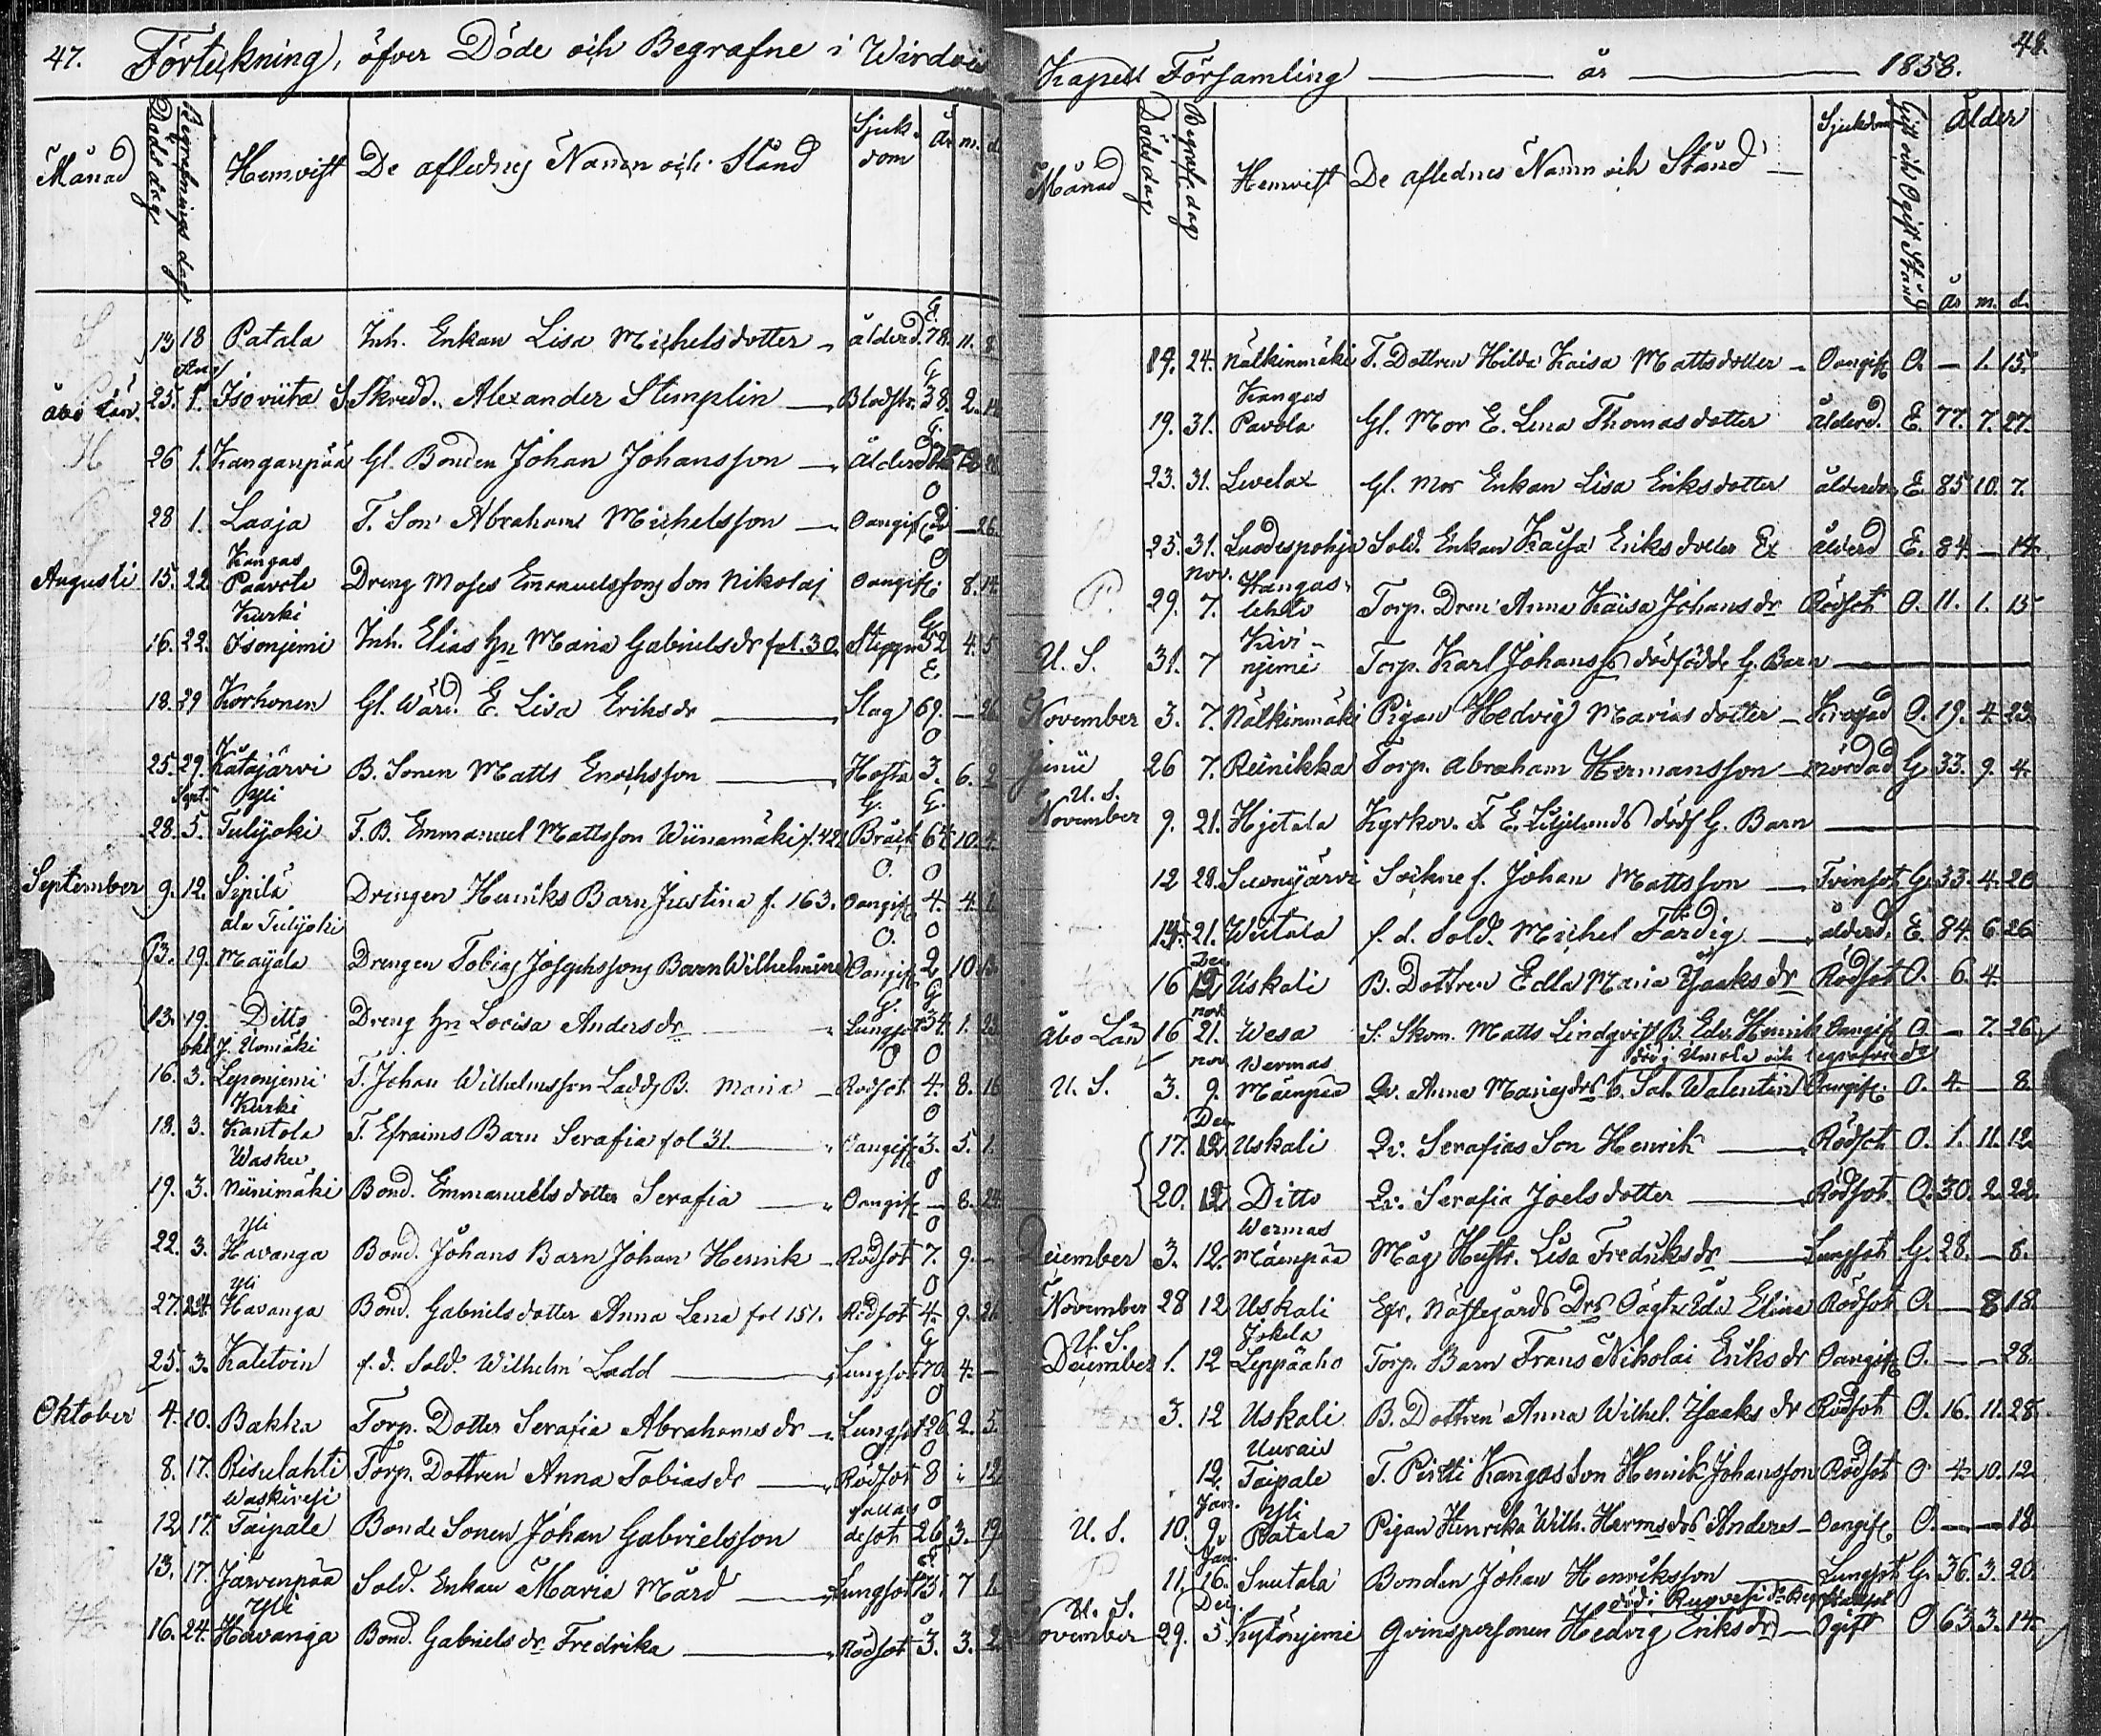 47. Förteckning, öfver Döde och Begrafne i Wirdois
Månad Dödsdag Begrafnings dag Hemvist De aflednes Namn och Stånd Sjuk-dom År m. d.
13 18 Patala Inh. Enkan Lisa Michelsdotter - ålderd. E. 78. 11. 8
Åbo Län. 25. 1. Isoviita S. Skredd. Alexander Stimplin - Blodstr. G. 38. 2. 14
26 1. Kanganpää Gl. Bonden Johan Johansson - Ålderd. G.
28 1. Laaja T. Son Abraham Michelsson - Oangif. O 2 - 26.
Augusti 15. 22 Kangas Paavola Dreng Moses Emanuelssons Son Nikolaj Oangif. O 8. 14
16. 22. Kurki Isonjemi Inh. Elias Hu Maria Gabrielsdr fol. 30. G. 52 4. 5
18. 29 Korhonen Gl. Wärd. E. Lisa Eriksdr - Slag E. 69. - 26
25. 29. Katajärvi B. Sonen Matts Enochsson - Hosta O 3. 6. 2
Sept. Yli
28. 5. Tulijoki T. B. Emmanuel Mattsson Wiinamäki f. 42 Bråck G. 64 10. 4.
September 9. 12. Sipilä Drengen Henriks Barn Justina f. 163. Oangif. O 4. 4. 1.
ala Tulijoki
13. 19. Majala Drengen Tobias Josephssons Barn Wilhelmina Oangif. O 2 10. 13.
13. 19. Ditto Dreng Hu Lovisa Andersdr - Lungsot G 34. 1. 23
okt. J. Uomäki
16. 3. Leponjemi T. Johan Wilhelmsson Ladds B. Maria - Rödsot O 4. 8. 16
Kurki
18. 3. Kantola T. Efraims Barn Serafia fol 31. - Oangif. O 3. 5. 1.
Wasku
19. 3. Niinimäki Bond. Emmanuels dotter Serafia - Oangif. O - 8. 24.
Yli
22. 3. Havanga Bond. Johans Barn Johan Henrik - Rödsot O 7. 9. -
Yli
27. 24. Havanga Bond. Gabrielsdotter Anna Lena fol 151. Rödsot O 4. 9. 26
25. 3. Kaletoin f. d. Sold. Wilhelm Ladd - Lungsot G 70. 4. -
Oktober 4. 10. Bakka Torp. Dotter Serafia Abrahamsdr - Lungsot O 26 2. 5.
8. 17. Risulahti Torp. Dottren Anna Tobiasdr - Rödsot O 8 " 12
Waskivesi
12 17. Taipale Bonde Sonen Johan Gabrielsson fallandesot O 26. 3. 19
13. 17. Järvenpää Sold. Enkan Maria Mård - Lungsot E. 73. 7 1.
Yli
16. 24. Havanga Bond. Gabrielsdr Fredrika - Rödsot O 3. 3. 2.
Kapell Församling - år - 1858. 48.
Månad Dödsdag Begrafn. dag Hemvist De aflednes Namn och Stånd - Sjukdom Gift och Ogift Stånd Ålder
år m. d.
19. 24. Nälkinmäki T. Dottren Hilda Kaisa Mattsdotter - Oangif. O. - 1. 15.
Kangas
19. 31. Pavola Gl. Mor E. Lena Thomasdotter ålderd. E. 77. 7. 27.
23. 31. Livelax Gl. Mor Enkan Lisa Eriksdotter ålderdom E. 85 10. 7.
25. 31. Luodespohja Sold. Enkan Kaisa Eriksdotter Ex ålderd E. 84. - 14.
nov. Hangas-
29. 7. lehto Torp. Dren Anna Kaisa Johansdr Rödsot O. 11. 1. 15
Kivi-
U. S. 31. 7 njemi Torp. Karl Johanss. dödfödde G. Barn -
November 3. 7. Nälkinmäki Pigan Hedvig Mariasdotter - O. 19. 4. 23.
Junii 26 7. Reinikka Torp. Abraham Hermansson - mördad G 33. 9. 4.
U. S.
November 9. 21. Hjetala Kyrkov. F. E. Liljelunds dödf. G. Barn -
12 28. Suonjärvi Sockne f. Johan Mattsson - Tvinsot G. 33. 4. 20
14. 21. Wiitala f. d. Sold. Michel Färdig - ålderd. E. 84. 6 26.
Dec
16 12 Uskali B. Dottren Edla Maria Isaksdr Rödsot O. 6. 4.
nov.
Åbo Län 16 21. Wesa S. Skom. Matts Lindqvist B. Edv. Henrik Oangif. O. - 7. 26
nov Wermas död i Umola och begrafven dr
U. S. 3. 9. Mäenpää Qv. Anna Mariasdrs b. Sal. Walentin Oangif. O. 4. - 8
Dec
17. 12 Uskali Qv: Serafias Son Henrik - Rödsot O. 1. 11. 12
20. 12 Ditto Qv: Serafia Joelsdotter - Rödsot O. 30. 2. 22.
Wermas
December 3. 12. Mäenpää Måg Hustr. Lisa Fredriksdr - Lungsot G. 28. - 8.
November 28 12 Uskali Efr. Näslegårds Drs Oägta Edv Elina Rödsot O. - 8 18.
U. S. Jokela
December 1. 12 Leppäaho Torp. Barn Frans Nikolai Eriksdr Oangif. O. - - 28.
3. 12 Uskali B. Dottren Anna Wilhel. Isaksdr Rödsot O. 16. 11. 28.
Uurais
12. Taipale T. Pirtti Kangas Son Henrik Johansson Rödsot O 4 10. 12.
Jan. Yli
U. S. 10. 9. Patala Pigan Henrika Wilh. Hermsdrs Anderes - Oangif. O. - - 18
Jan.
11. 16. Suutala Bonden Johan Henriksson - Lungsot G. 36. 3. 20.
U. S. Dec. död i Ruovesi
November 29. 5 Kytönjemi Qvinspersonen Hedvig Eriksdr - Ogift O 63. 3. 14.